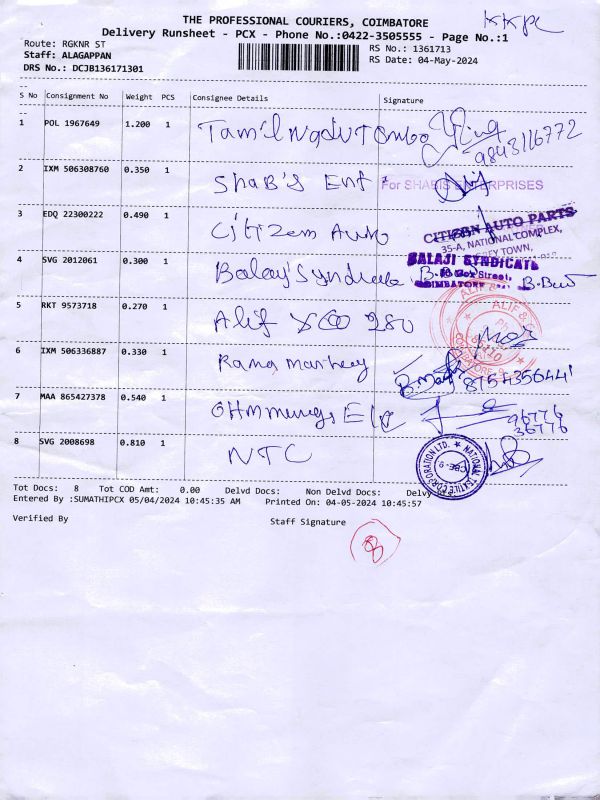 THE PROFESSIONAL COURIERS, COIMBATORE
KKPC
Delivery Runsheet - PCX - Phone No.:0422-3505555 - Page No.:1
Route: RGKNR ST
RS No.: 1361713
Staff: ALAGAPPAN
RS Date: 04-May-2024
DRS No.: DCJB136171301
S No Consignment No Weight PCS Consignee Details Signature
1 POL 1967649 1.200 1
9843116772
2 IXM 506308760 0.350 1 ShaB's Ent For SHABIS ENTERPRISES
3 EDQ 22300222 0.490 1 Citizem Auto
CITIZEN AUTO PARTS
35-A, NATIONAL COMPLEX,
TOWN,
4 SVG 2012061 0.300 1
BALAJI SYNDICATE
Street,
COIMBATORE
5 RKT 9573718 0.270 1 Alif
ALIF &
6 IXM 506336887 0.330 1 Rama
7 MAA 865427378 0.540 1
96776
36776
8 SVG 2008698 0.810 1 NTC
NATIONAL TEXTILE CORPORATION LTD.
Tot Docs: 8 Tot COD Amt: 0.00 Delvd Docs: Non Delvd Docs: Delvy
Entered By :SUMATHIPCX 05/04/2024 10:45:35 AM Printed On: 04-05-2024 10:45:57
Verified By Staff Signature
8